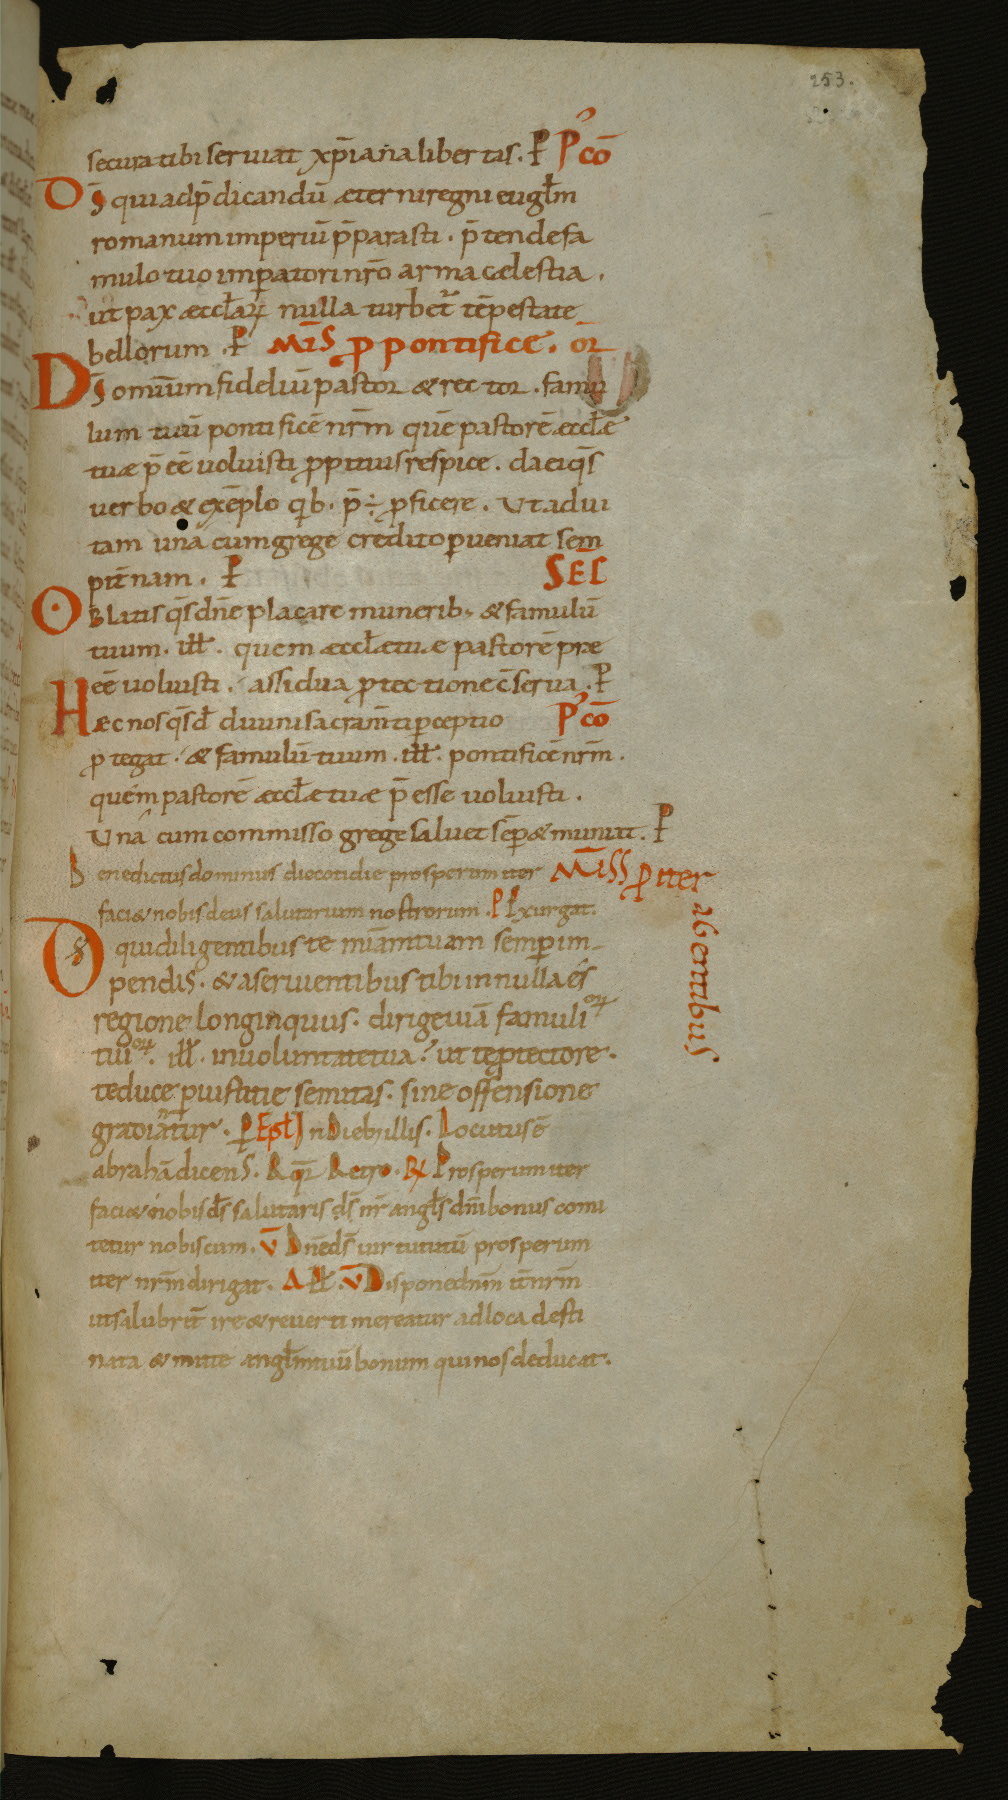 253.
secura tibi seruiat xp̄iana libertas. P P' cō
D s̄ qui ad p̄dicandū æterni regni eugl̄m
romanum imperiū p̄parasti. p̄tende fa
mulo tuo imperatori nr̄o arma cælestia.
ut pax æccl̄arꝝ nulla turbet̄ tēpestate
bellorum. P MīS ꝓ pontifice. or̄
D s̄ omīum fideliū pastor & rector. famu
lum tuū pontificē nr̄m quē pastorē æccl̄e
tuæ p̄ eē uoluisti ꝓpitius respice. da ei q̄s
uerbo & exēplo qib. p̄ ÷ ꝓficere. Ut ad ui
tam unā cum grege credito ꝑueniat sem
pit̄nam. P SEC̄
O Blatis q̄s dn̄e placare munerib. & famulū
tuum. ill̄. quem æccl̄æ tuæ pastorē præ
eē uoluisti. assidua ꝓtectione c̄serua. P
H æc nos q̄s d̄ diuini sacram̄ti ꝑceptio P' cō
ꝓtegat. & famulū tuum. ill̄. pontificē nr̄m.
quem pastorē æccl̄æ tuæ p̄esse uoluisti.
Unā cum commisso grege saluet sēꝑ & muniat. P
B enedictus dominus die cotidie prosperum iter MīSS ꝓ iter
faci& nobis deus salutarium nostrorum. P Exurgat.
abentibus
D s̄ qui diligentibus te mīam tuam semꝑ im
pendis. & a seruientibus tibi in nulla es
regione longinquus. dirige uiā famuliorꝝ
tuiorꝝ. ill̄. in uoluntate tua? ut te ꝓtectore.
te duce ꝑ iustitie semitas. sine offensione
gradiantur. P Epl̄ In diebȝ illis. Locutus ē
abrahā dicens. R qr̄ Retro. R Prosperum iter
faci& nobis d̄s salutaris d̄s nr̄ angl̄s dn̄i bonus comi
tetur nobiscum. V̄ Dn̄e d̄s uirtutū prosperum
iter nr̄m dirigat. All̄. V̄ Dispone dn̄m it̄ nr̄m
ut salubrit̄ ire & reuerti mereatur ad loca desti
nata & mitte angl̄m tuū bonum qui nos deducat.